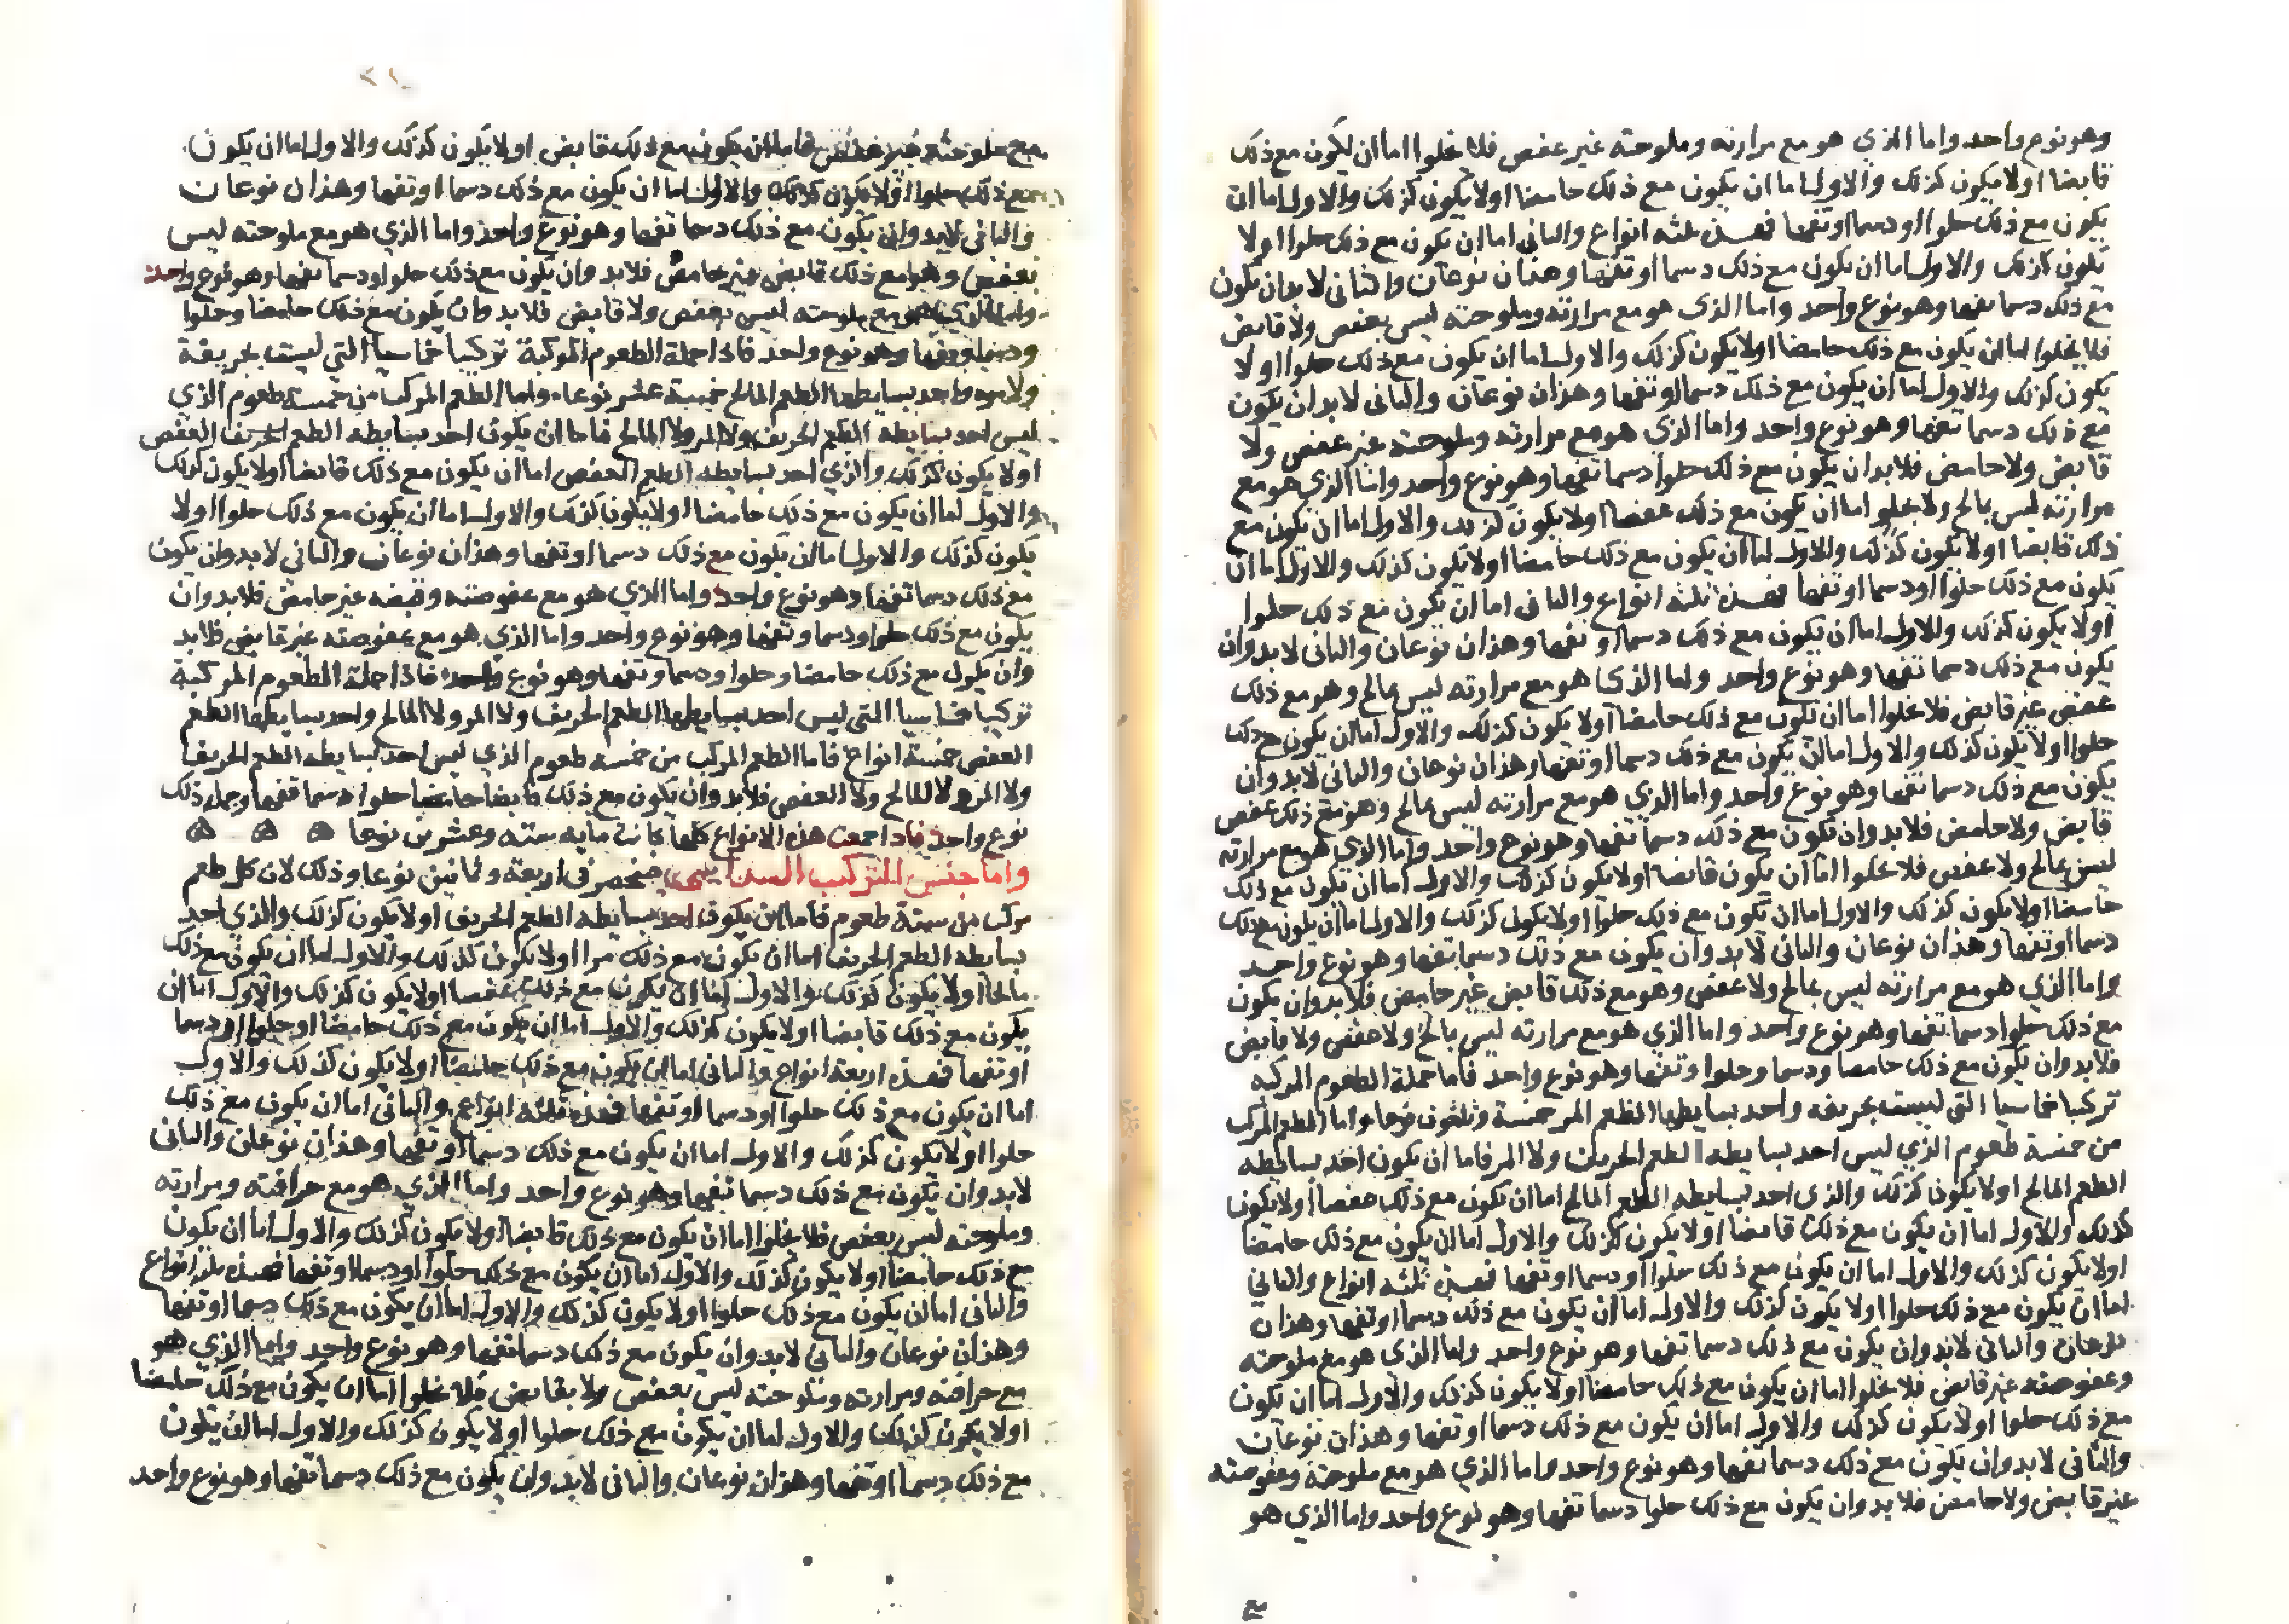 وهو نوع واحد واما الذي هو مع مرارته وملوحته غير عفص فلا يخلوا اما ان يكون مع ذلك
قابضا اولا يكون كذلك والاول اما ان يكون مع ذلك حامضا اولا يكون كذلك والاول اما ان
يكون مع ذلك حلوا او دسما او تفها فهذه ثلثه انواع والثاني اما ان يكون مع ذلك حلوا اولا
يكون كذلك والاول اما ان يكون مع ذلك دسما او تفها وهذان نوعان والثاني لا بد وان يكون
مع ذلك دسما تفها وهو نوع واحد واما الذي هو مع مرارته وملوحته ليس بعفص ولا قابض
فلا يخلوا اما ان يكون مع ذلك حامضا اولا يكون كذلك والاول اما ان يكون مع ذلك حلوا اولا
يكون كذلك والاول اما ان يكون مع ذلك دسما او تفها وهذان نوعان والثاني لا بد ان يكون
مع ذلك دسما تفها وهو نوع واحد واما الذي هو مع مرارته وملوحته غير عفص ولا
قابض ولا حامض فلا بد وان يكون مع ذلك حلوا دسما تفها وهو نوع واحد واما الذي هو مع
مرارته ليس بمالح ولا يخلو اما ان يكون مع ذلك عفصا اولا يكون كذلك والاول اما ان يكون مع
ذلك قابضا اولا يكون كذلك والاول اما ان يكون مع ذلك حامضا اولا يكون كذلك والاول اما ان
يكون مع ذلك حلوا او دسما او تفها فهذه ثلثه انواع والثاني اما ان يكون مع ذلك حلوا
اولا يكون كذلك والاول اما ان يكون مع ذلك دسما او تفها وهذان نوعان والثاني لا بد وان
يكون مع ذلك دسما تفها وهو نوع واحد واما الذي هو مع مرارته ليس بمالح وهو مع ذلك
عفص غير قابض فلا يخلوا اما ان يكون مع ذلك حامضا اولا يكون كذلك والاول اما ان يكون مع ذلك
حلوا اولا يكون كذلك والاول اما ان يكون مع ذلك دسما او تفها وهذان نوعان والثاني لا بد وان
يكون مع ذلك دسما تفها وهو نوع واحد واما الذي هو مع مرارته ليس بمالح وهو مع ذلك عفص
قابض ولا حامض فلا بد وان يكون مع ذلك دسما تفها وهو نوع واحد واما الذي هو مع مرارته
ليس بمالح ولا عفص فلا يخلوا اما ان يكون قابضا اولا يكون كذلك والاول اما ان يكون مع ذلك
حامضا اولا يكون كذلك والاول اما ان يكون مع ذلك حلوا اولا يكون كذلك والاول اما ان يكون مع ذلك
دسما او تفها وهذان نوعان والثاني لا بد وان يكون مع ذلك دسما تفها وهو نوع واحد
واما الذي هو مع مرارته ليس بمالح ولا عفص وهو مع ذلك قابض غير حامض فلا بد وان يكون
مع ذلك حلوا دسما تفها وهو نوع واحد واما الذي هو مع مرارته ليس بمالح ولا عفص ولا قابض
فلا بد وان يكون مع ذلك حامضا ودسما وحلوا وتفها وهو نوع واحد فاما جملة الطعوم المركبه
تركيبا خماسيا التي ليست بحريفه واحد بسايطها الطعم المر خمسة وثلثون نوعا واما الطعم المركب
من خمسة طعوم الذي ليس احد بسايطه الطعم الحريف ولا المر فاما ان يكون احد بسايطه
الطعم المالح اولا يكون كذلك والذي احد بسايطه الطعم المالح اما ان يكون مع ذلك عفصا اولا يكون
كذلك والاول اما ان يكون مع ذلك قابضا اولا يكون كذلك والاول اما ان يكون مع ذلك حامضا
اولا يكون كذلك والاول اما ان يكون مع ذلك حلوا او دسما او تفها فهذه ثلثه انواع والثاني
اما ان يكون مع ذلك حلوا اولا يكون كذلك والاول اما ان يكون مع ذلك دسما او تفها وهذان
نوعان والثاني لا بد وان يكون مع ذلك دسما تفها وهو نوع واحد واما الذي هو مع ملوحته
وعفوصته غير قابض فلا يخلوا اما ان يكون مع ذلك حامضا اولا يكون كذلك والاول اما ان يكون
مع ذلك حلوا اولا يكون كذلك والاول اما ان يكون مع ذلك دسما او تفها وهذان نوعان
والثاني لا بد وان يكون مع ذلك دسما تفها وهو نوع واحد واما الذي هو مع ملوحته وعفوصته
غير قابض ولا حامض فلا بد وان يكون مع ذلك حلوا دسما تفها وهو نوع واحد واما الذي هو
مع
٢١
مع ملوحته غير عفص فاما ان يكون مع ذلك قابض اولا يكون كذلك والاول اما ان يكون
مع ذلك حلوا اولا يكون كذلك والاول اما ان يكون مع ذلك دسما او تفها وهذان نوعان
والثاني لا بد وان يكون مع ذلك دسما تفها وهو نوع واحد واما الذي هو مع ملوحته ليس
بعفص وهو مع ذلك قابض غير حامض فلا بد وان يكون مع ذلك حلوا ودسما تفها وهو نوع واحد
واما الذي هو مع ملوحته ليس بعفص ولا قابض فلا بد وان يكون مع ذلك حامضا وحلوا
ودسما وتفها وهو نوع واحد فاذا جملة الطعوم المركبة تركيبا خماسيا التي ليست بحريفة
ولا مره واحد بسايطها الطعم المالح خمسة عشر نوعا واما الطعم المركب من خمسة طعوم الذي
ليس احد بسايطه الطعم الحريف ولا المر ولا المالح فاما ان يكون احد بسايطه الطعم العفص
اولا يكون كذلك والذي احد بسايطه الطعم العفص اما ان يكون مع ذلك قابضا اولا يكون كذلك
والاول اما ان يكون مع ذلك حامضا اولا يكون كذلك والاول اما ان يكون مع ذلك حلوا اولا
يكون كذلك والاول اما ان يكون مع ذلك دسما او تفها وهذان نوعان والثاني لا بد وان يكون
مع ذلك دسما تفها وهو نوع واحد واما الذي هو مع عفوصته وقبضه غير حامض فلا بد وان
يكون مع ذلك حلوا ودسما وتفها وهو نوع واحد واما الذي هو مع عفوصته غير قابض فلا بد
وان يكون مع ذلك حامضا وحلوا ودسما وتفها وهو نوع واحد فاذا جملة الطعوم المركبة
تركيبا خماسيا التي ليس احد بسايطها الطعم الحريف ولا المر ولا المالح واحد بسايطها الطعم
العفص خمسة انواع فاما الطعم المركب من خمسة طعوم الذي ليس احد بسايطه الطعم الحريف
ولا المر ولا المالح ولا العفص فلا بد وان يكون مع ذلك قابضا حامضا حلوا دسما تفها وجمل ذلك
نوع واحد فاذا جمعت هذه الانواع كلها كانت مايه سته وعشرين نوعا ه ه ه
واما جنس التركيب السداسي فينحصر في اربعة وثمانين نوعا وذلك لان كل طعم
مركب من ستة طعوم فاما ان يكون احد بسايطه الطعم الحريف اولا يكون كذلك والذي احد
بسايطه الطعم الحريف اما ان يكون مع ذلك مرا اولا يكون كذلك والاول اما ان يكون مع ذلك
مالحا اولا يكون كذلك والاول اما ان يكون مع ذلك عفصا اولا يكون كذلك والاول اما ان
يكون مع ذلك قابضا اولا يكون كذلك والاول اما ان يكون مع ذلك حامضا او حلوا او دسما
او تفها فهذه اربعة انواع والثاني اما ان يكون مع ذلك حامضا اولا يكون كذلك والاول
اما ان يكون مع ذلك حلوا او دسما او تفها فهذه ثلثه انواع والثاني اما ان يكون مع ذلك
حلوا اولا يكون كذلك والاول اما ان يكون مع ذلك دسما او تفها وهذان نوعان والثاني
لا بد وان يكون مع ذلك دسما تفها وهو نوع واحد واما الذي هو مع حرافته ومرارته
وملوحته ليس بعفص فلا يخلوا اما ان يكون مع ذلك قابضا اولا يكون كذلك والاول اما ان يكون
مع ذلك حامضا اولا يكون كذلك والاول اما ان يكون مع ذلك حلوا او دسما او تفها فهذه ثلثه انواع
والثاني اما ان يكون مع ذلك حلوا اولا يكون كذلك والاول اما ان يكون مع ذلك دسما او تفها
وهذان نوعان والثاني لا بد وان يكون مع ذلك دسما تفها وهو نوع واحد واما الذي هو
مع حرافته ومرارته وملوحته ليس بعفص ولا بقابض فلا يخلوا اما ان يكون مع ذلك حامضا
اولا يكون كذلك والاول اما ان يكون مع ذلك حلوا اولا يكون كذلك والاول اما ان يكون
مع ذلك دسما او تفها وهذان نوعان والثاني لا بد وان يكون مع ذلك دسما تفها وهو نوع واحد